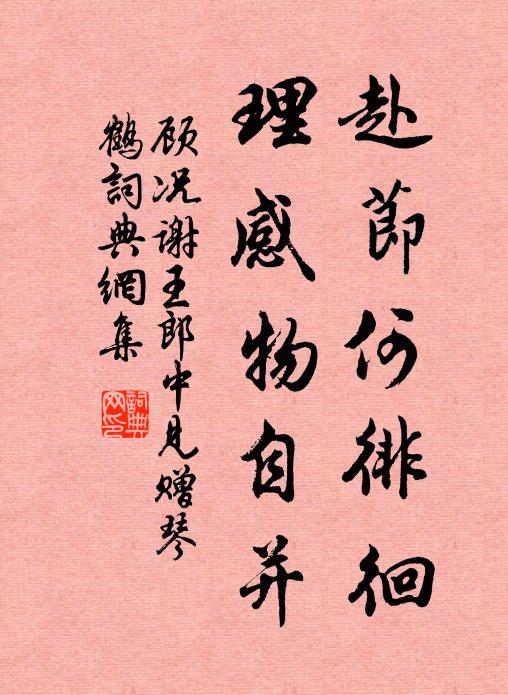 赴節何徘徊
理感物自并
顾况谢王郎中見赠琴
鶴詞典網集
詞典
网印